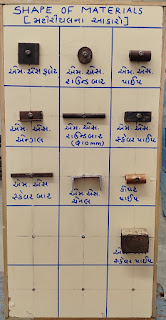 SHAPE OF MATERIALS
[મટીરીયલના આકારો]
એમ.એસ ફ્લેટ
એમ. એસ.
રાઉન્ડ બાર
એમ. એસ
પાઈપ
એમ. એસ.
એન્ગલ
એમ. એસ.
રાઉન્ડ બાર
(Ø10mm)
એમ. એસ.
સ્કવેર પાઈપ
એમ. એસ.
સ્કવેર બાર
એમ. એસ.
ચેનલ
કોપર
પાઈપ
એમ. એસ
સ્કવેર પાઈપ